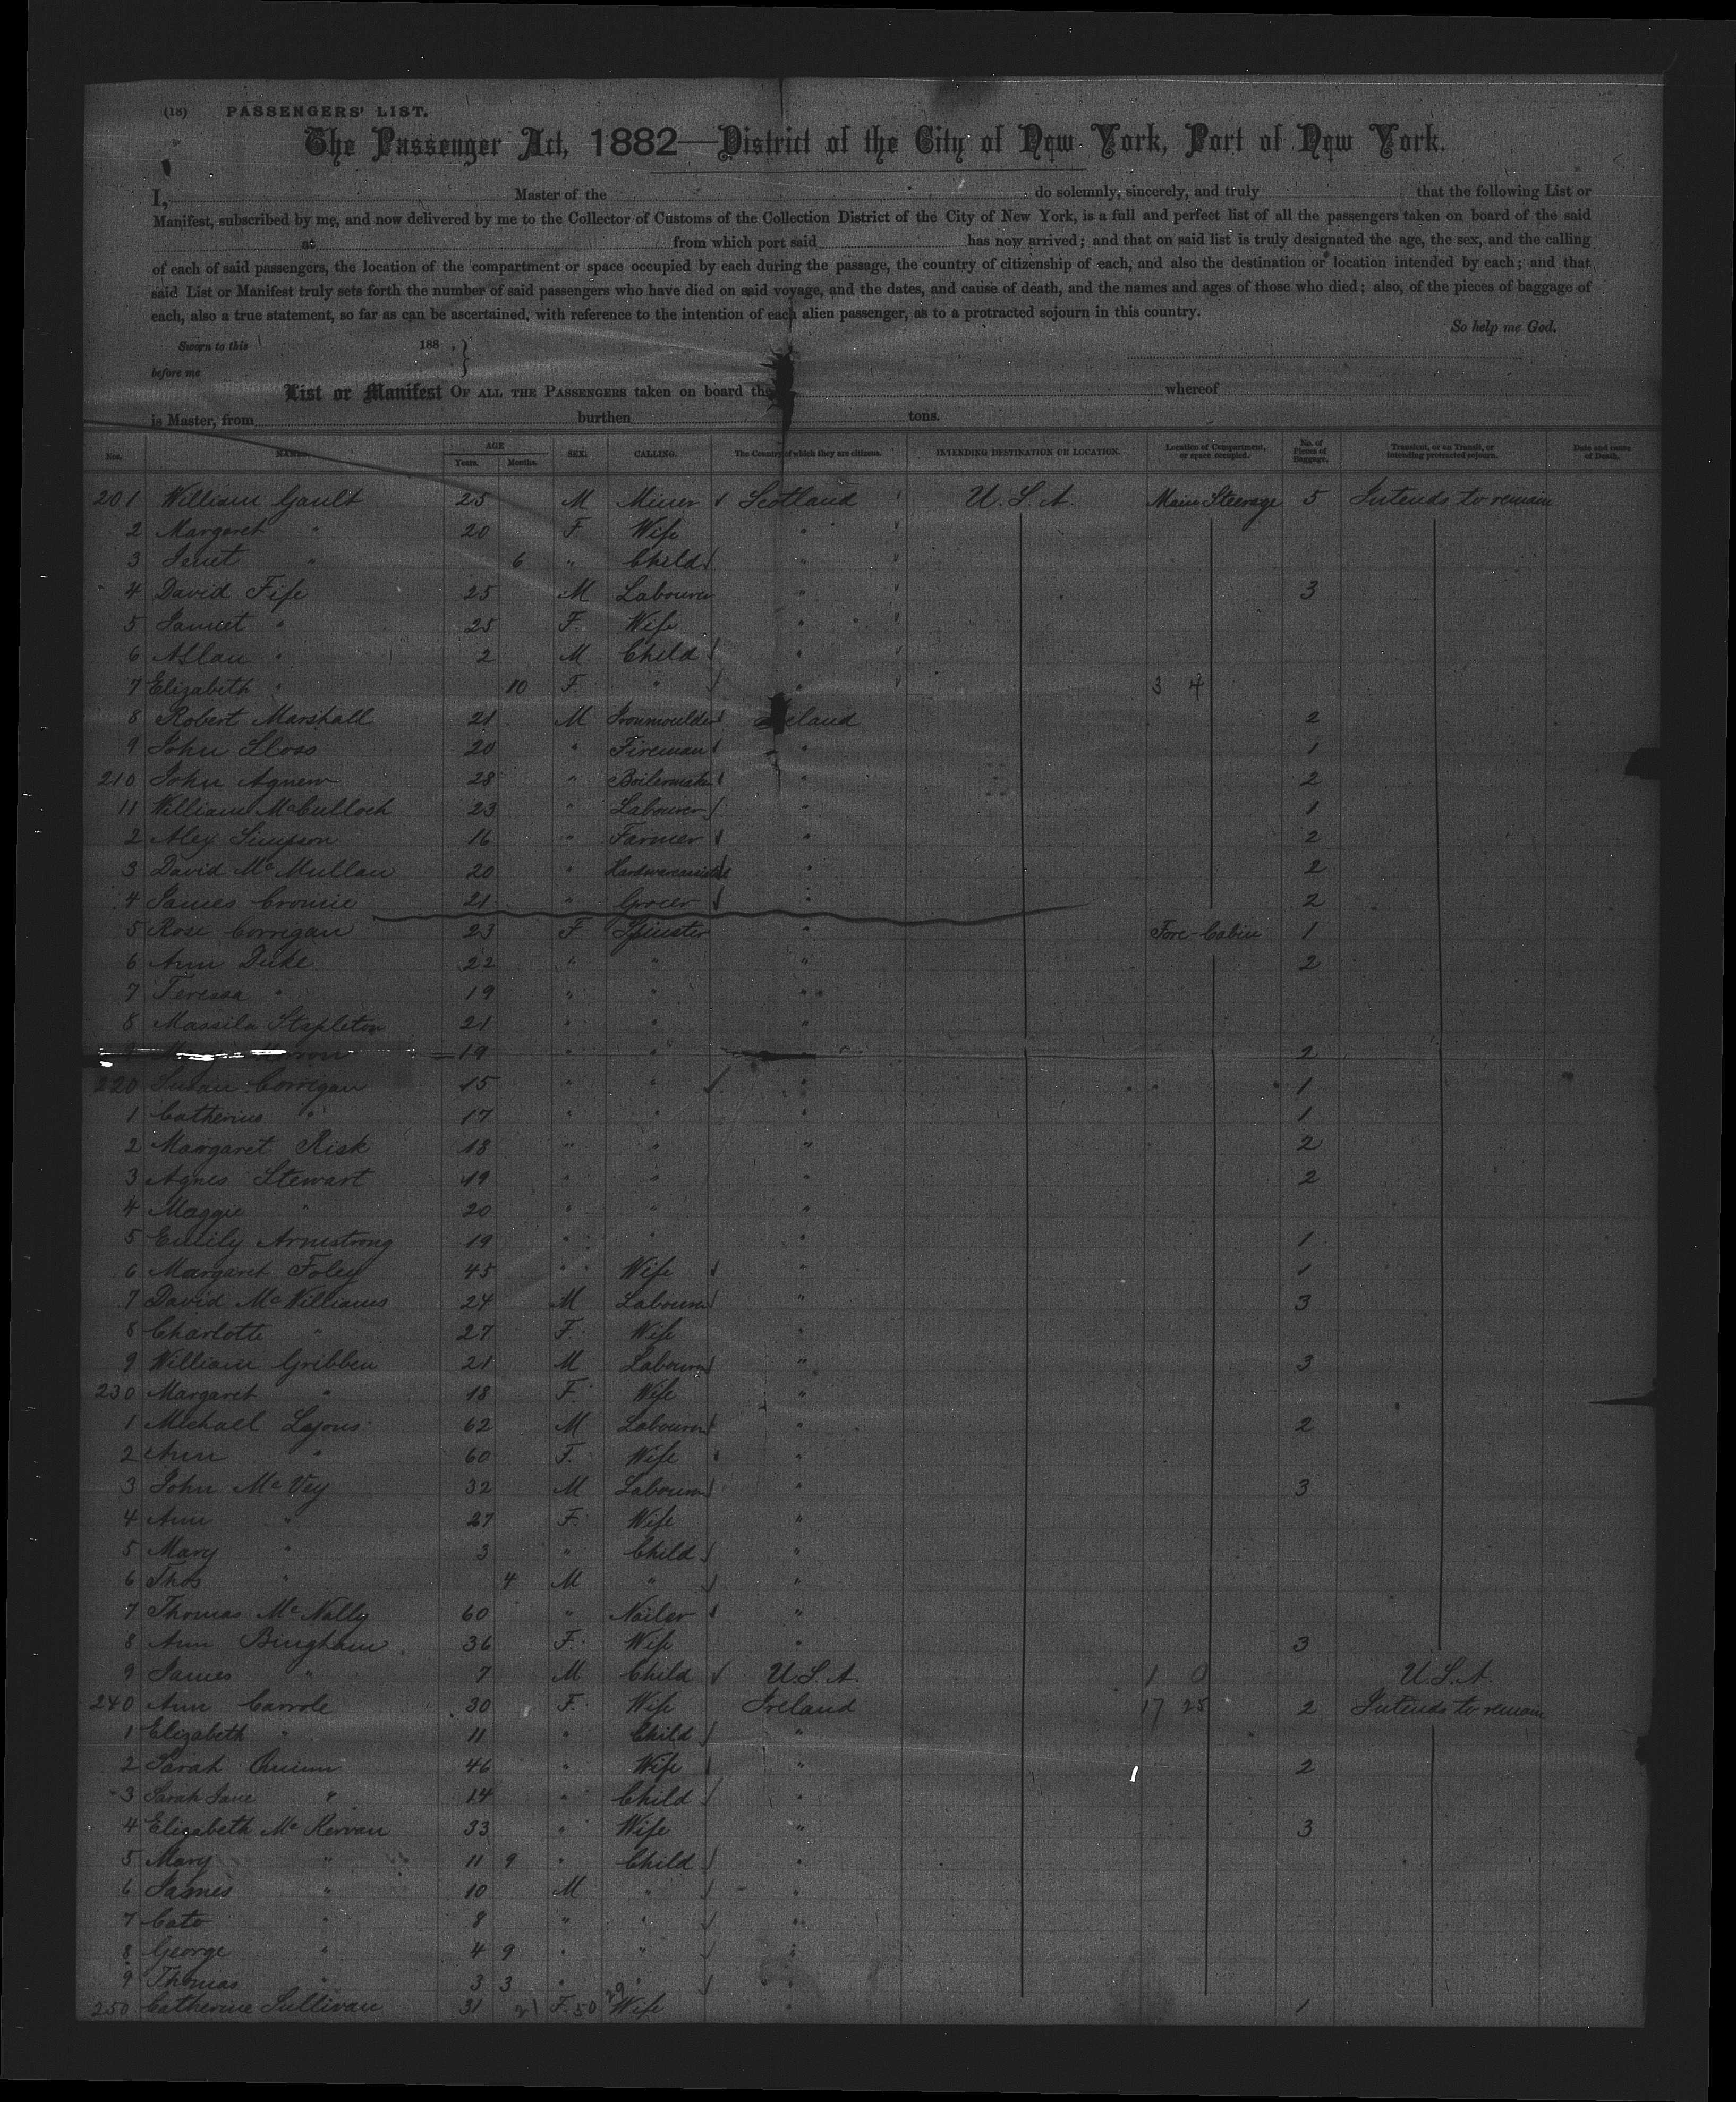 (18) PASSENGERS' LIST.
The Passenger Act, 1882—District of the City of New York, Port of New York.
I, Master of the do solemnly, sincerely, and truly that the following List or
Manifest, subscribed by me, and now delivered by me to the Collector of Customs of the Collection District of the City of New York, is a full and perfect list of all the passengers taken on board of the said
at from which port said has now arrived; and that on said list is truly designated the age, the sex, and the calling
of each of said passengers, the location of the compartment or space occupied by each during the passage, the country of citizenship of each, and also the destination or location intended by each; and that
said List or Manifest truly sets forth the number of said passengers who have died on said voyage, and the dates, and cause of death, and the names and ages of those who died; also, of the pieces of baggage of
each, also a true statement, so far as can be ascertained, with reference to the intention of each alien passenger, as to a protracted sojourn in this country.
So help me God.
Sworn to this 188
before me
List or Manifest OF ALL THE PASSENGERS taken on board the whereof
is Master, from burthen tons.
Nos. NAMES. AGE Years. Months. SEX. CALLING. The Country of which they are citizens. INTENDING DESTINATION OR LOCATION. Location of Compartment, or space occupied. No. of Pieces of Baggage. Transient, or in Transit, or intending protracted sojourn. Date and cause of Death.
201 William Gault 25 M Miner Scotland U.S.A. Main Steerage 5 Intends to remain
2 Margaret " 20 F Wife "
3 Jenet " 6 " Child "
4 David Fife 25 M Labourer " 3
5 Jannet " 25 F. Wife "
6 Allan " 2 M Child "
7 Elizabeth " 10 F. " " 3 4
8 Robert Marshall 21 M Ironmoulder Ireland 2
9 John Sloss 20 " Fireman " 1
210 John Agnew 28 " Boilermaker " 2
11 William McCulloch 23 " Labourer " 1
2 Alex Simpson 16 " Farmer " 2
3 David McMullan 20 " " 2
4 James Cromie 21 " Grocer " 2
5 Rose Corrigan 23 F Spinster " Fore-Cabin 1
6 Ann Duke 22 " " " 2
7 Teressa " 19 " " "
8 Massila Stapleton 21 " " "
19 " " 2
220 Susan Corrigan 15 " " " 1
1 Catherine " 17 " " " 1
2 Margaret Risk 18 " " " 2
3 Agnes Stewart 19 " " " 2
4 Maggie " 20 " " "
5 Emily Armstrong 19 " " " 1
6 Margaret Foley 45 " Wife " 1
7 David McWilliams 24 M Labourer " 3
8 Charlotte " 27 F. Wife "
9 William Gribben 21 M Labourer " 3
230 Margaret " 18 F. Wife "
1 Michael Lyons 62 M Labourer " 2
2 Ann " 60 F. Wife "
3 John McVey 32 M Labourer " 3
4 Ann " 27 F. Wife "
5 Mary " 3 " Child "
6 Thos " 4 M " "
7 Thomas McNally 60 " Nailer "
8 Ann Bingham 36 F. Wife " 3
9 James " 7 M Child U.S.A. 1 0 U.S.A.
240 Ann Carrole 30 F. Wife Ireland 17 25 2 Intends to remain
1 Elizabeth " 11 " Child "
2 Sarah Quinn 46 " Wife " 2
3 Sarah Jane " 14 " Child "
4 Elizabeth McKervan 33 " Wife " 3
5 Mary " 11 9 " Child "
6 James " 10 M " "
7 Cato " 8 " " "
8 George " 4 9 " " "
9 Thomas " 3 3 " " "
250 Catherine Sullivan 31 21 F. 50 29 Wife " 1